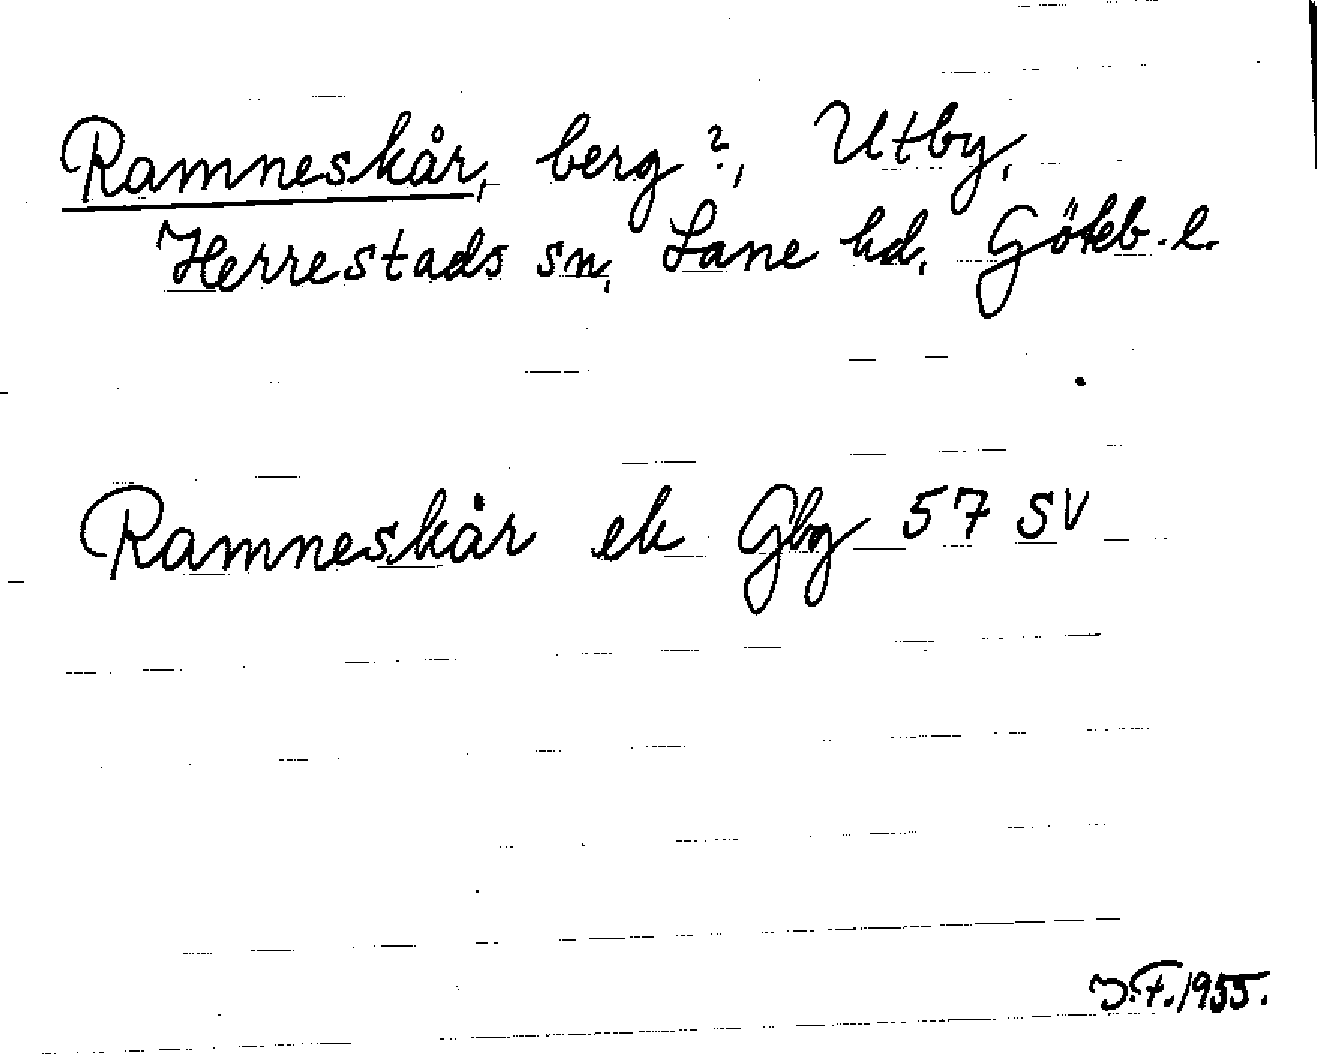 Ramneskår, berg?, Utby,
Herrestads sn, Lane hd. Göteb. l.
Ramneskår ek Gbg 57 SV
J.F. 1955.